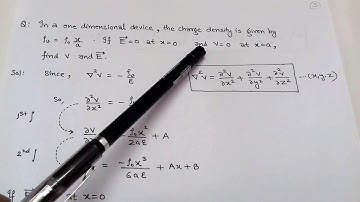 Q: In a one dimensional device, the charge density is given by
ρv = ρ₀ x/a . If E⃗=0 at x=0 and V=0 at x=a,
find V and E⃗.
Sol: Since, ∇²V = -ρv/ε
∇²V = ∂²V/∂x² + ∂²V/∂y² + ∂²V/∂z² ...(x,y,z)
So, ∂²V/∂x² =
1st ∫
∂V/ = -ρ₀x²/2aε + A
2nd ∫
= -ρ₀x³/6aε + Ax + B
If E⃗ at x=0